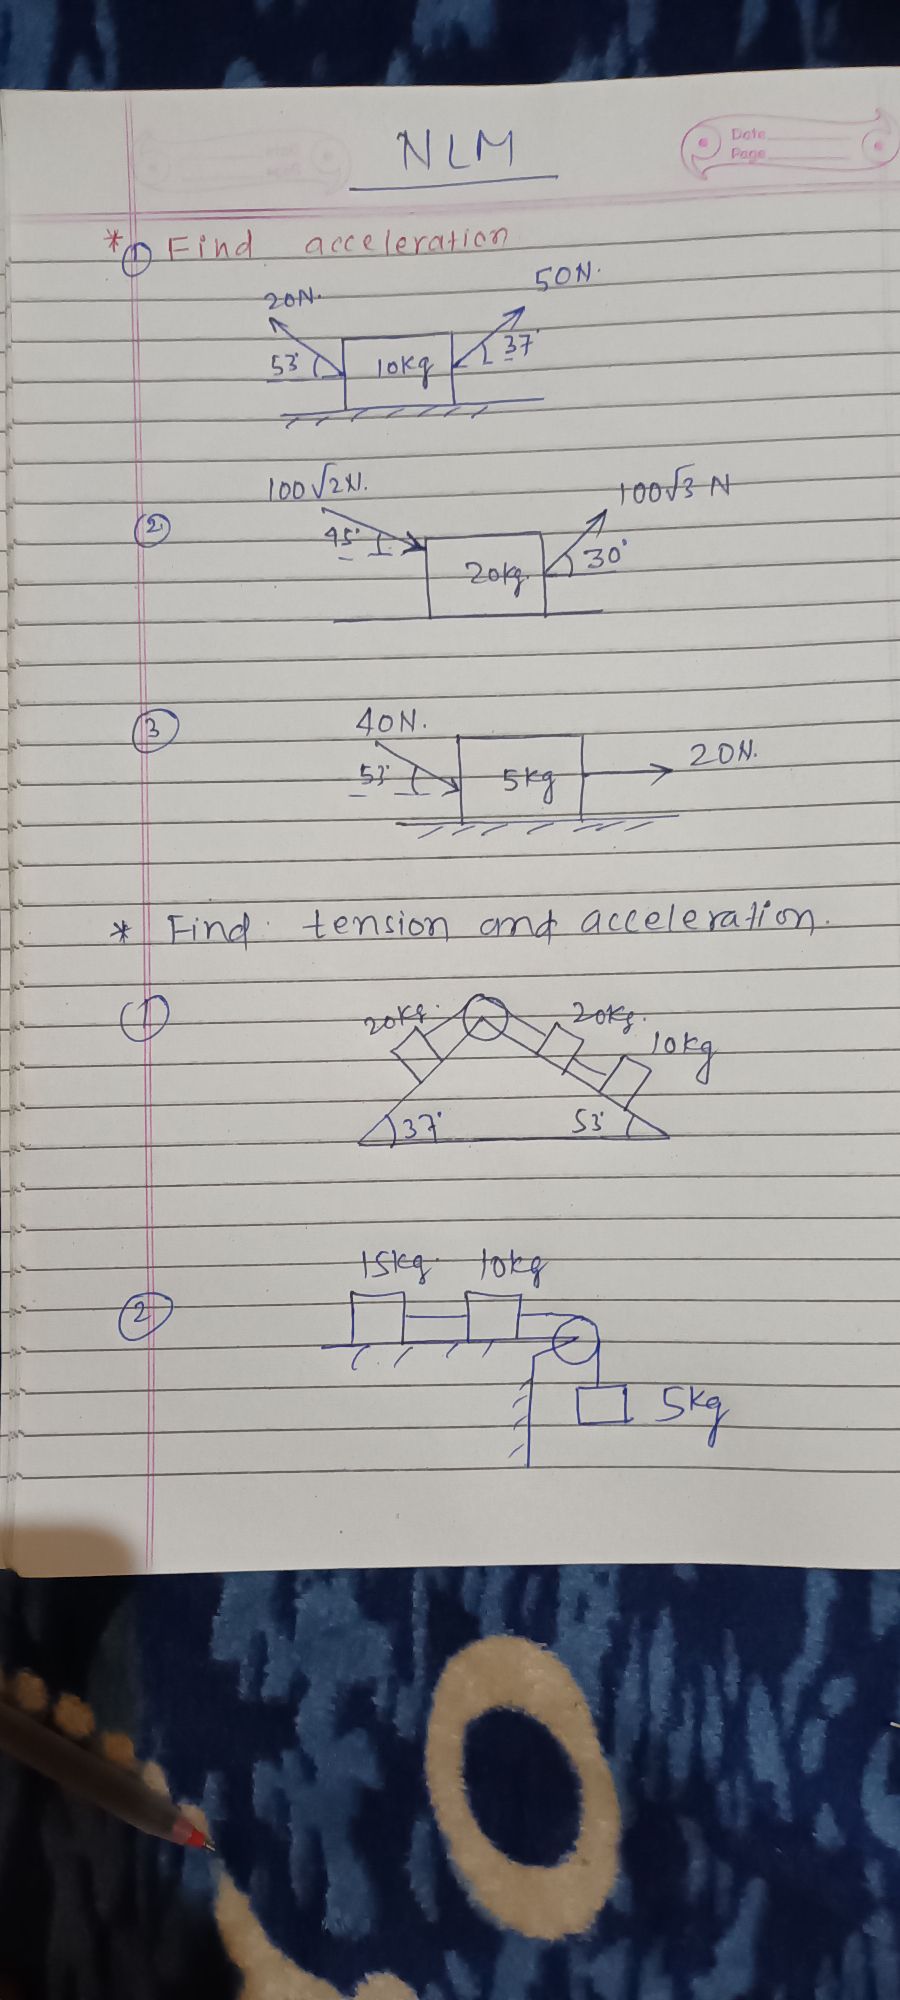 NLM
Date
Page
* ① Find acceleration
20N. 50N.
53° 10kg 37°
100√2N. 100√3 N
② 45° 20kg. 30°
③ 40N. 20N.
53° 5kg
* Find tension and acceleration.
① 20kg. 20kg. 10kg
37° 53°
15kg 10kg
②
5kg